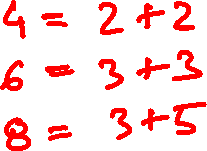 4 = 2+2
6 = 3+3
8 = 3+5